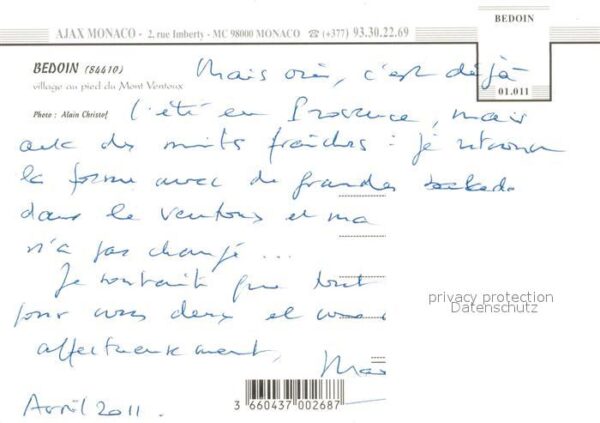 AJAX MONACO - 2, rue Imberty - MC 98000 MONACO ☎ (+377) 93.30.22.69
BEDOIN
01.011
BEDOIN (84410)
village au pied du Mont Ventoux
Photo : Alain Christof
Mais oui, c'est déjà
l'été en Provence, mais
avec des nuits fraîches : je retrouve
la forme avec de grandes
dans le Ventoux et ma
n'a pas changé...
Je souhaite que tout
pour vous deux et vous
affectueusement,
Mar
privacy protection
Datenschutz
Avril 2011.
3 660437 002687